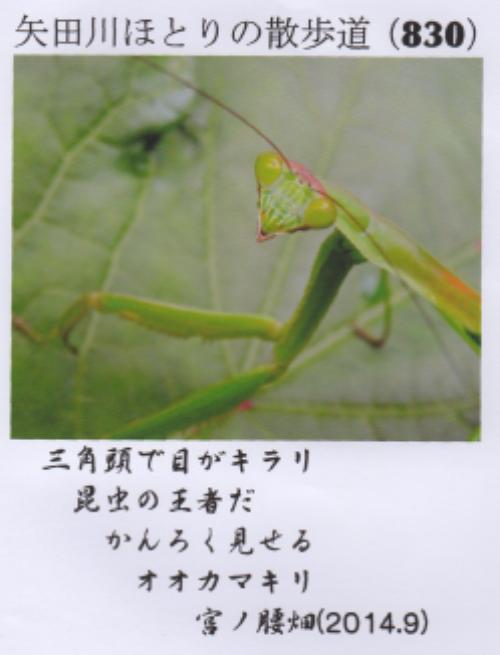 矢田川ほとりの散歩道（830）
三角頭で目がキラリ
昆虫の王者だ
かんろく見せる
オオカマキリ
宮ノ腰畑(2014.9)